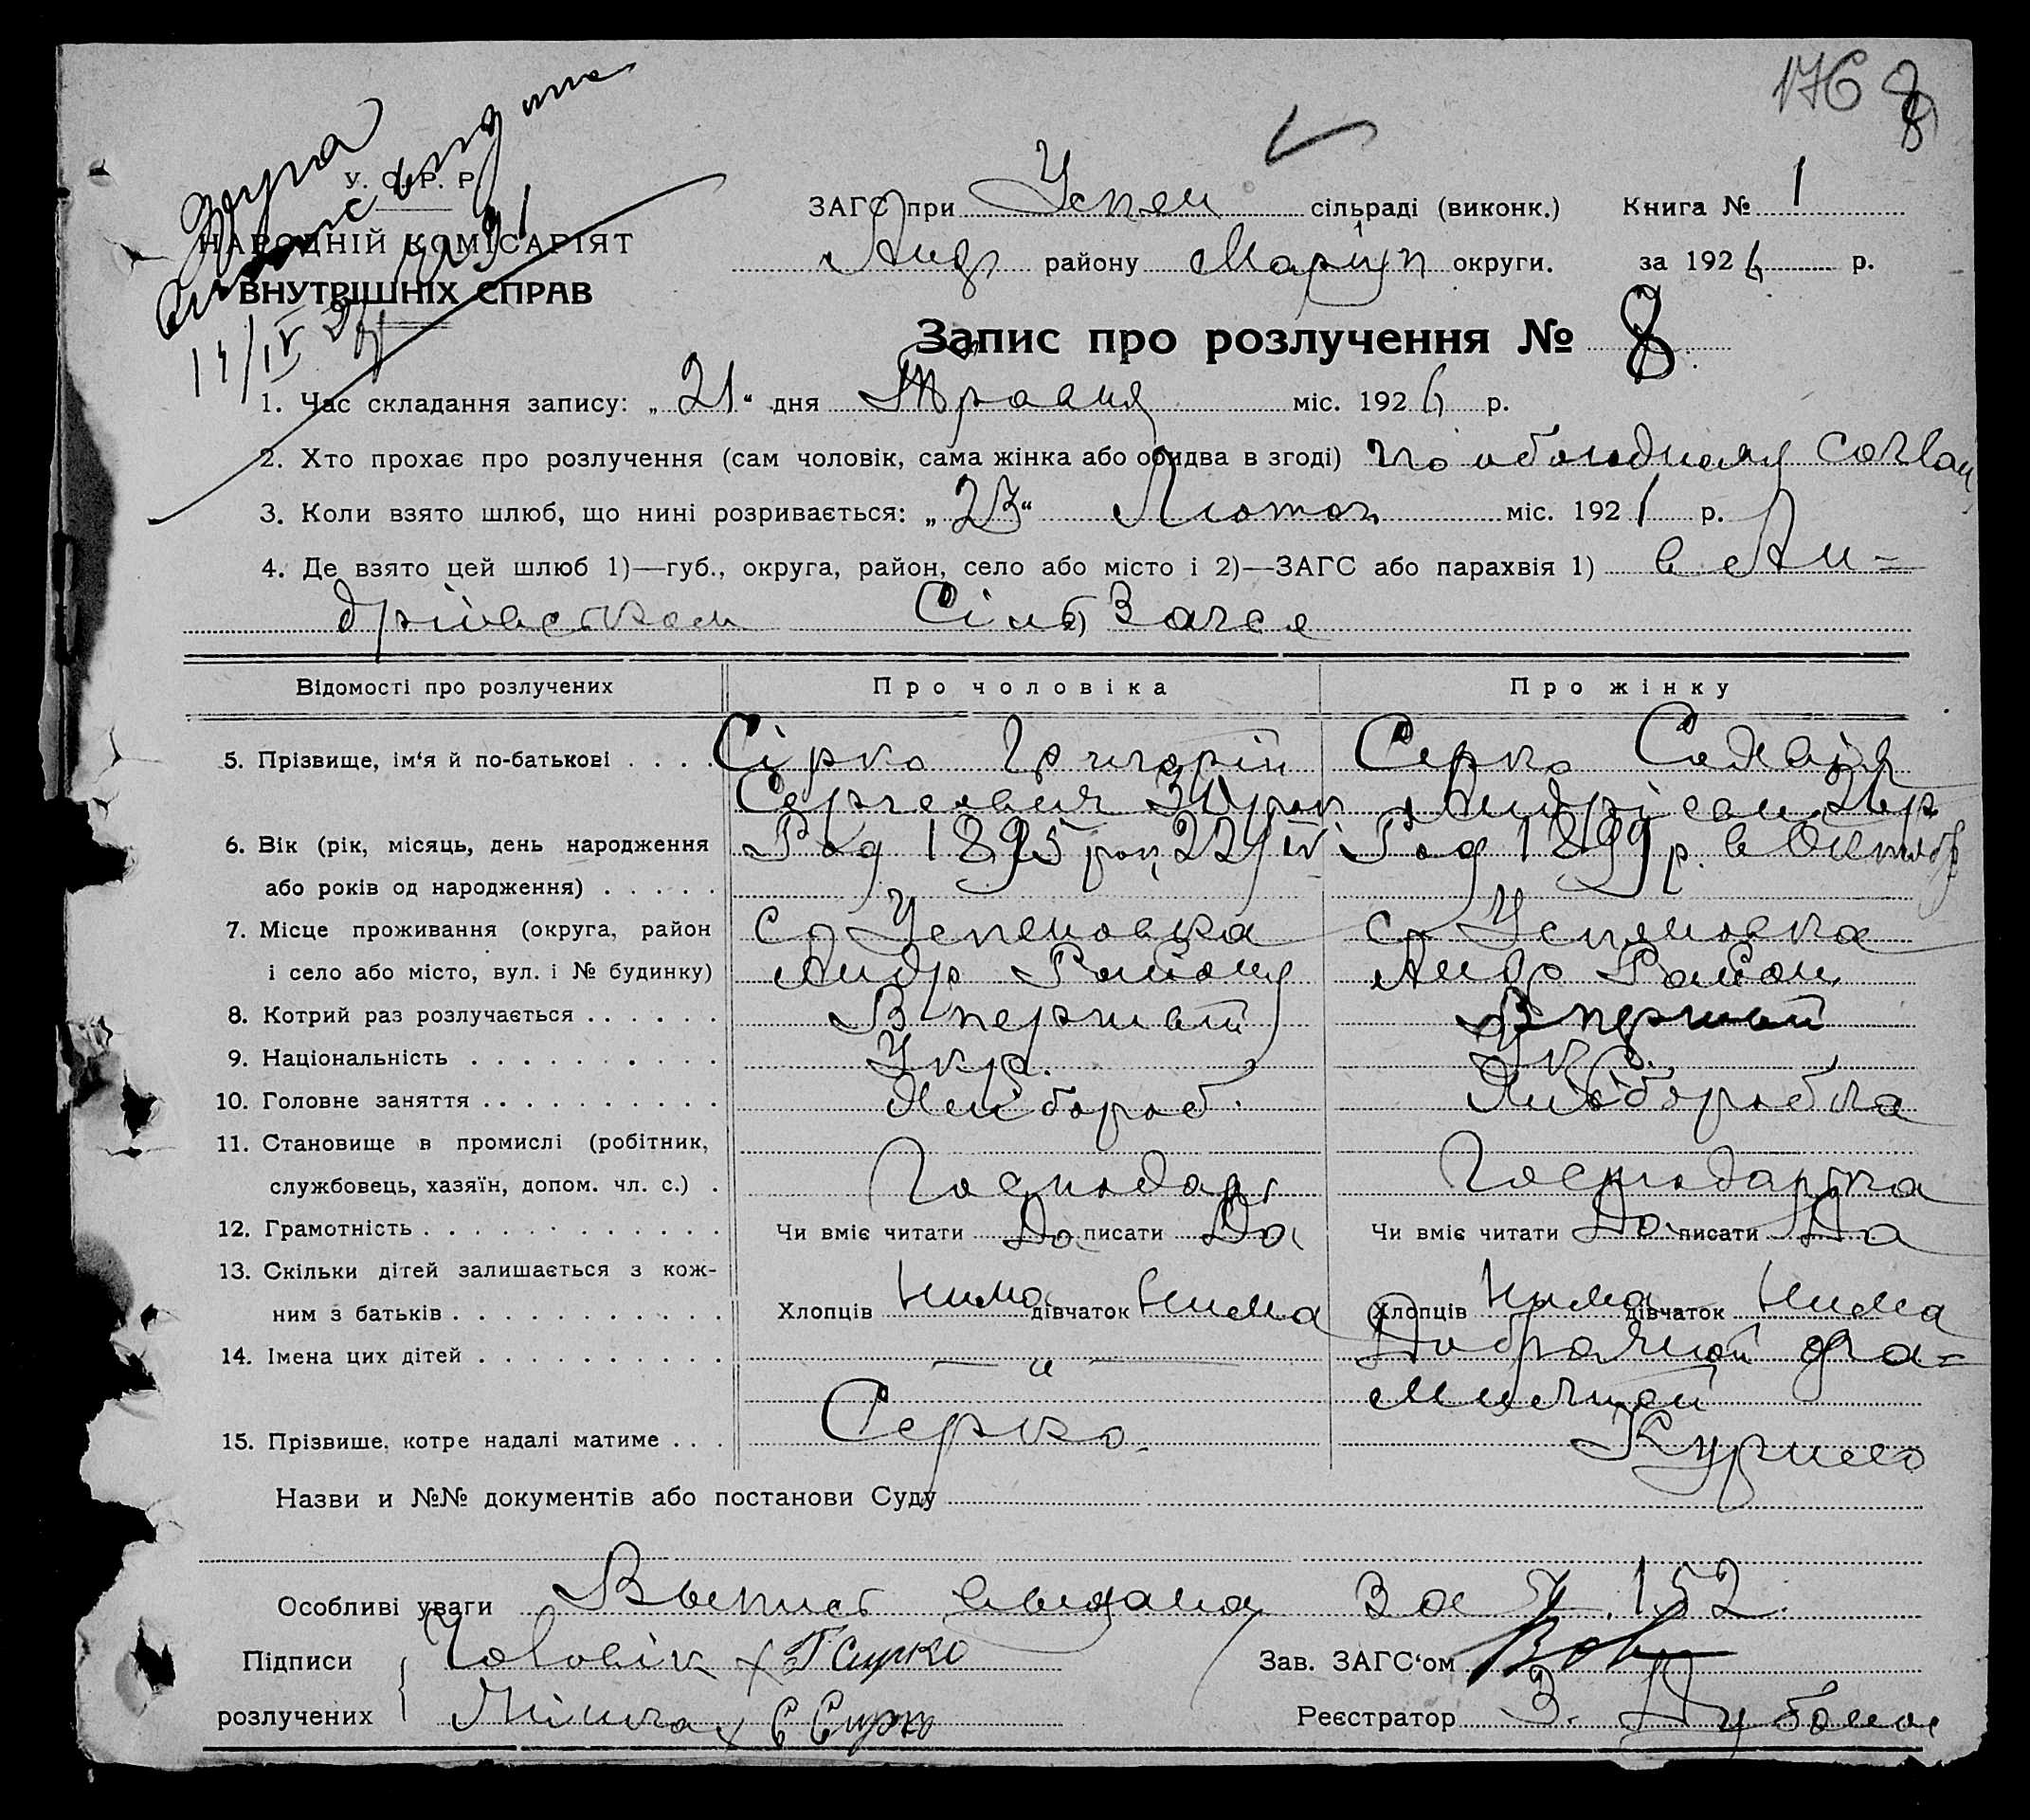 176 8
У. С. Р. Р.
НАРОДНІЙ КОМІСАРІЯТ
ВНУТРІШНІХ СПРАВ
ЗАГС при Успен сільраді (виконк.) Книга № 1
Андр району Маріуп округи. за 1926 р.
Запис про розлучення № 8
1. Час складання запису: „21“ дня Травня міс. 1926 р.
2. Хто прохає про розлучення (сам чоловік, сама жінка або обидва в згоді) По обоюдному соглас
3. Коли взято шлюб, що нині розривається: „23“ Лютого міс. 1921 р.
4. Де взято цей шлюб 1)—губ., округа, район, село або місто і 2)—ЗАГС або парахвія 1) в Ан-
дріївском Сіль Загсе
Відомості про розлучених Про чоловіка Про жінку
5. Прізвище, ім'я й по-батькові . . . . Сірко Григорій Серко Софвія
Сергеевич
6. Вік (рік, місяць, день народження Род 1895 рок 22/IV Род 1899 р. в Октябр
або років од народження) . . . . .
7. Місце проживання (округа, район с. Успеновка с. Успеновка
і село або місто, вул. і № будинку) Андр Району Андр Район
8. Котрий раз розлучається . . . . . . В першый В першый
9. Національність . . . . . . . . . . Укр. Укр.
10. Головне заняття . . . . . . . . . . Хліbороб. Хліbоробка
11. Становище в промислі (робітник,
службовець, хазяїн, допом. чл. с.) . Господарь Господарька
12. Грамотність . . . . . . . . . . . . Чи вміє читати Да писати Да Чи вміє читати Да писати Да
13. Скільки дітей залишається з кож-
ним з батьків . . . . . . . . . . . Хлопців Нима дівчаток Нима Хлопців Нима дівчаток Нима
14. Імена цих дітей . . . . . . . . . . — „ — Добрачной фа-
милией
15. Прізвише, котре надалі матиме . . . Серко. Курило
Назви и №№ документів або постанови Суду
Особливі уваги Выпись выдана За № 152
Підписи Чоловік х Г Сирко Зав. ЗАГС'ом
розлучених Жінка х С Сирко Реєстратор З.